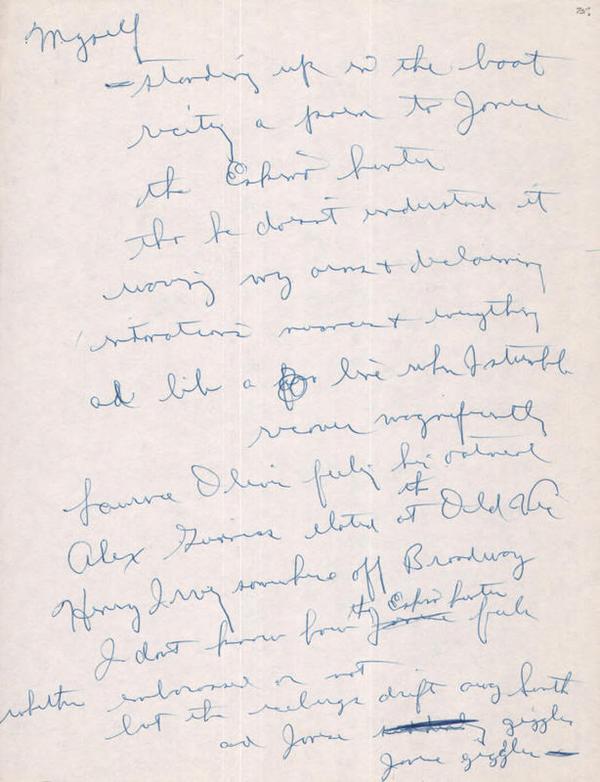 Myself
— standing up in the boat
reciting a poem to Jonice
the Eskimo hunter
tho he doesn't understand it
waving my arms & declaiming
intonations nuances & everything
ad lib a line when I stumble
recover magnificently
Laurence Olivier feeling his
Alex Guinness elated at the Old Vic
Henry Irving somewhere off Broadway
I dont know how the Eskimo hunter feels
whether embarassed or not
but the icebergs drift away South
and Jonice giggles
Jonice giggles —